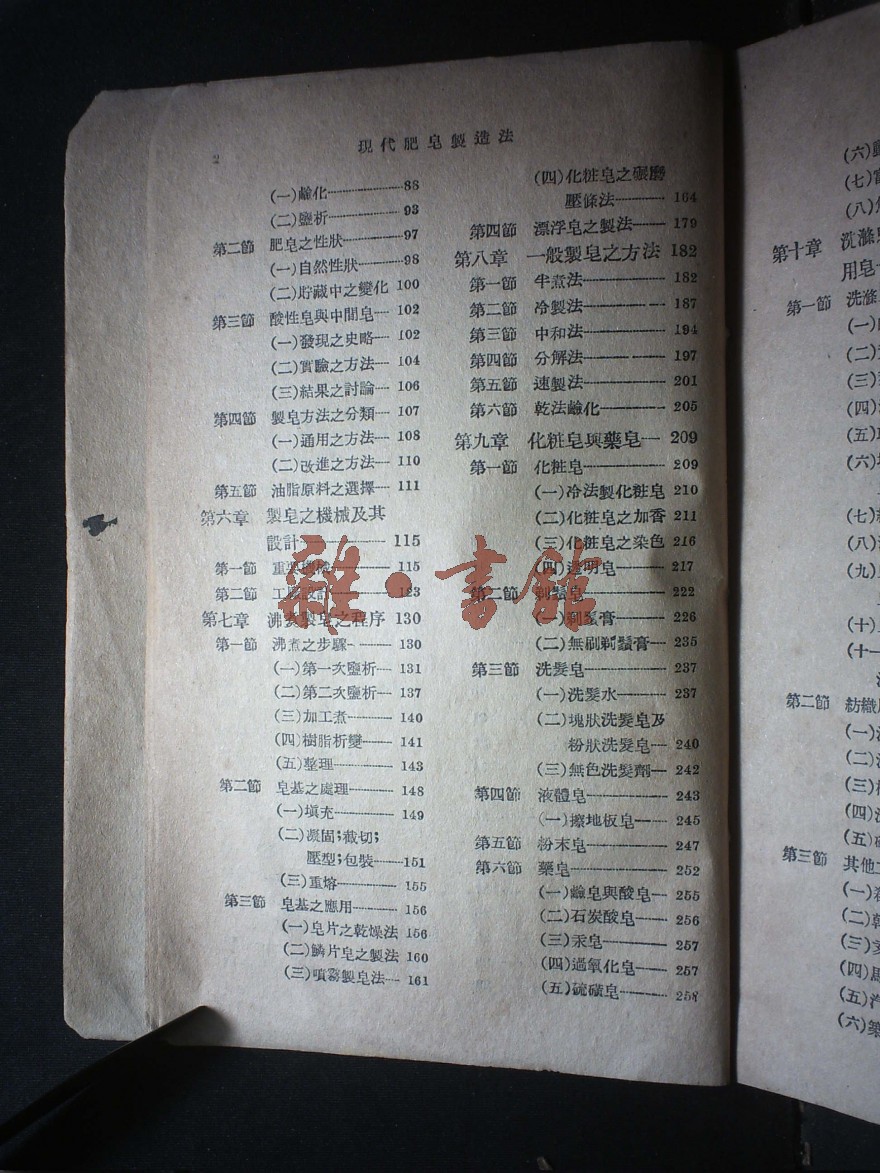 2
現代肥皂製造法
(一)鹼化 88
(二)鹽析 93
第二節 肥皂之性狀 97
(一)自然性狀 98
(二)貯藏中之變化 100
第三節 酸性皂與中間皂 102
(一)發現之史略 102
(二)實驗之方法 104
(三)結果之討論 106
第四節 製皂方法之分類 107
(一)通用之方法 108
(二)改進之方法 110
第五節 油脂原料之選擇 111
第六章 製皂之機械及其
設計 115
第一節 重要機械 115
第二節 工廠設計 123
第七章 沸煮製皂之程序 130
第一節 沸煮之步驟 130
(一)第一次鹽析 131
(二)第二次鹽析 137
(三)加工煮 140
(四)樹脂析變 141
(五)整理 143
第二節 皂基之處理 148
(一)填充 149
(二)凝固;截切;
壓型;包裝 151
(三)重熔 155
第三節 皂基之應用 156
(一)皂片之乾燥法 156
(二)鱗片皂之製法 160
(三)噴霧製皂法 161
(四)化粧皂之碾磨
壓條法 164
第四節 漂浮皂之製法 179
第八章 一般製皂之方法 182
第一節 半煮法 182
第二節 冷製法 187
第三節 中和法 194
第四節 分解法 197
第五節 速製法 201
第六節 乾法鹼化 205
第九章 化粧皂與藥皂 209
第一節 化粧皂 209
(一)冷法製化粧皂 210
(二)化粧皂之加香 211
(三)化粧皂之染色 216
(四)透明皂 217
第二節 剃鬚皂 222
(一)剃鬚膏 226
(二)無刷剃鬚膏 235
第三節 洗髮皂 237
(一)洗髮水 237
(二)塊狀洗髮皂及
粉狀洗髮皂 240
(三)無色洗髮劑 242
第四節 液體皂 243
(一)擦地板皂 245
第五節 粉末皂 247
第六節 藥皂 252
(一)鹼皂與酸皂 255
(二)石炭酸皂 256
(三)汞皂 257
(四)過氧化皂 257
(五)硫磺皂 258
雜·書館
(六)
(七)
(八)
第十章 洗滌
用皂
第一節 洗滌
(一)
(二)
(三)
(四)
(五)
(六)
(七)
(八)
(九)
(十)
(十一
第二節 紡織
(一)
(二)
(三)
(四)
(五)
第三節 其他
(一)
(二)
(三)
(四)
(五)汽
(六)